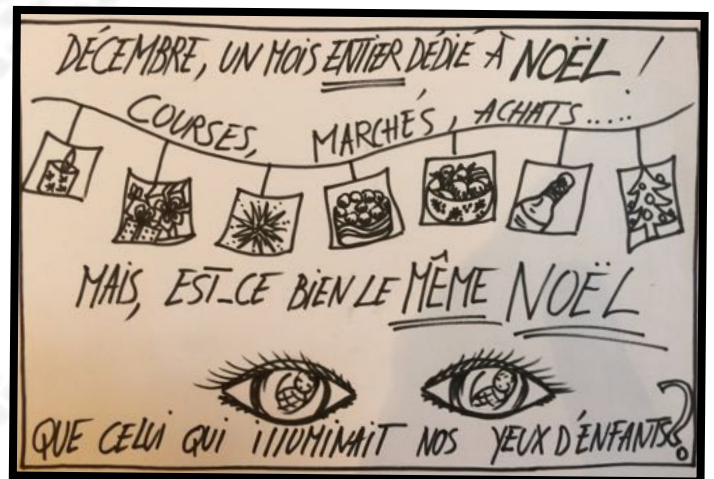 DÉCEMBRE, UN MOIS ENTIER DÉDIÉ À NOËL !
COURSES, MARCHÉS, ACHATS.....
MAIS, EST-CE BIEN LE MÊME NOËL
QUE CELUI QUI ILLUMINAIT NOS YEUX D'ENFANTS?